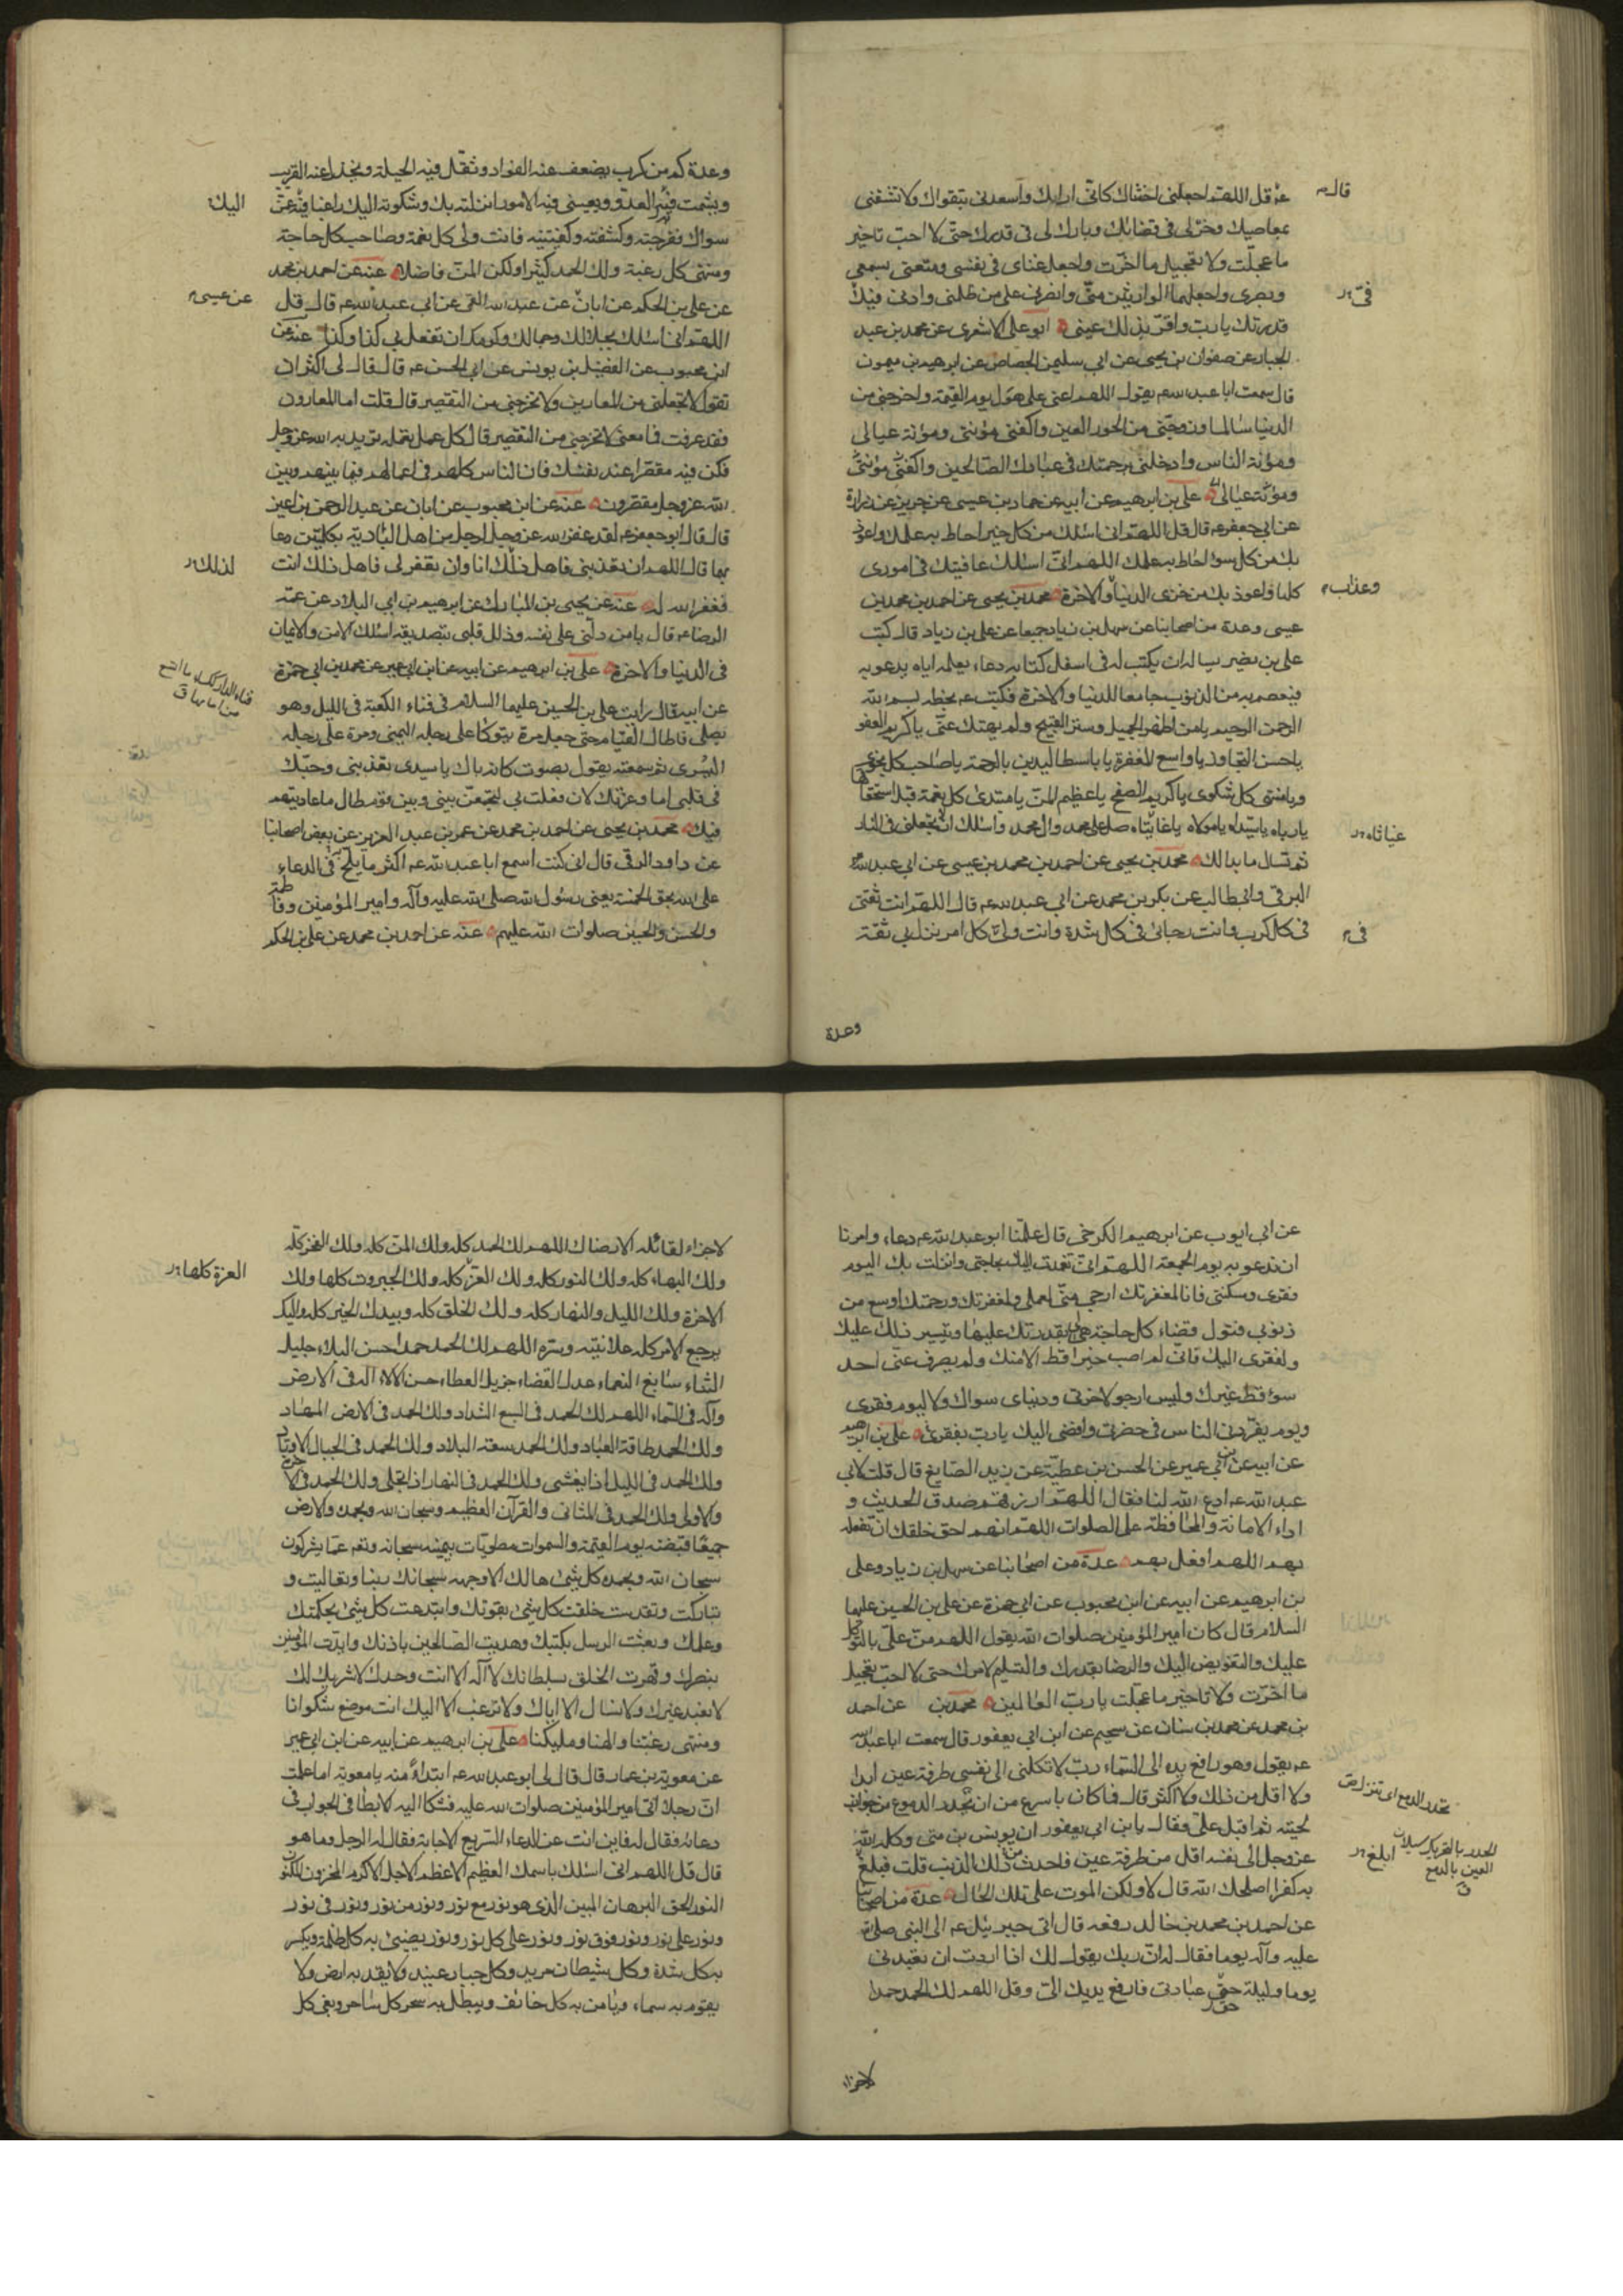 عم قل اللهم اجعلنى اخشاك كانى اراك واسعدنى بتقواك ولا تشقنى
قال
بمعاصيك وخر لى فى قضائك وبارك لى فى قدرك حتى لا احب تاخير
ما عجلت ولا تعجيل ما اخرت واجعل غناى فى نفسى ومتعنى بسمعى
وبصرى واجعلهما الوارثين منى وانصرنى على من ظلمنى وارنى فيه
فى
قدرتك يا رب واقر بذلك عينى ابو على الاشعرى عن محمد بن عبد
الجبار عن صفوان بن يحيى عن ابى سليمن الجصاص عن ابرهيم بن ميمون
قال سمعت ابا عبد الله عم يقول اللهم اعنى على هول يوم القيمة واخرجنى من
الدنيا سالما وزوجنى من الحور العين واكفنى مؤنتى ومؤنة عيالى
ومؤنة الناس وادخلنى برحمتك فى عبادك الصالحين
ومؤنة عيالى على بن ابرهيم عن ابيه عن حماد بن عيسى عن حريز عن زرارة
عن ابى جعفر عم قال قل اللهم انى اسئلك من كل خير احاط به علمك واعوذ
بك من كل سوء احاط به علمك اللهم انى اسئلك عافيتك فى امورى
كلها واعوذ بك من خزى الدنيا والاخرة محمد بن يحيى عن احمد بن محمد بن
وعذاب
عيسى وعدة من اصحابنا عن سهل بن زياد جميعا عن على بن زياد قال كتب
على بن بصير يساله ان يكتب له فى اسفل كتابه دعاء يعلمه اياه يدعو به
فيعصم به من الذنوب جامعا للدنيا والاخرة فكتب عم بخطه بسم الله
الرحمن الرحيم يا من اظهر الجميل وستر القبيح ولم يهتك عنى يا كريم العفو
يا حسن التجاوز يا واسع المغفرة يا باسط اليدين بالرحمة يا صاحب كل نجوى
ويا منتهى كل شكوى يا كريم الصفح يا عظيم المن يا مبتدئ كل نعمة قبل استحقاقها
يا رباه يا سيداه يا مولاه يا غايتاه صل على محمد وال محمد واسئلك ان لا تجعلنى فى النار
غياثاه
ثم تسال ما بدا لك محمد بن يحيى عن احمد بن محمد بن عيسى عن ابى عبد الله
البرقى وابى طالب عن بكر بن محمد عن ابى عبد الله عم قال اللهم انت ثقتى
فى كل كرب وانت رجائى فى كل شدة وانت ولى كل امر نزل بى ثقة
فى
وعدة
وعدة كم من كرب يضعف عنه الفؤاد وتقل فيه الحيلة ويخذل عنه القريب
ويشمت فيه العدو وتعيينى فيه الامور انزلته بك وشكوته اليك راغبا فيه عمن
اليك
سواك ففرجته وكشفته وكفيتنيه فانت ولى كل نعمة وصاحب كل حاجة
ومنتهى كل رغبة ولك الحمد كثيرا ولك المن فاضلا عنه عن احمد بن محمد
عن على بن الحكم عن ابان عن عبد الله القمى عن ابى عبد الله عم قال قل
عن عيسى
اللهم انى اسئلك بجلالك وجمالك وكرمك ان تفعل بى كذا وكذا عنه عن
ابن محبوب عن الفضل بن يونس عن ابى الحسن عم قال قال لى اكثر ان
تقول لا تجعلنى من المعارين ولا تخرجنى من التقصير قال قلت اما المعارون
فقد عرفت فما معنى لا تخرجنى من التقصير قال كل عمل تعمله تريد به الله عز وجل
فكن فيه مقصرا عند نفسك فان الناس كلهم فى اعمالهم فيما بينهم وبين
الله عز وجل مقصرون عنه عن ابن محبوب عن ابان عن عبد الرحمن بن اعين
قال قال ابو جعفر عم لقد غفر الله عز وجل لرجل من اهل البادية بكلمتين دعا
بهما قال اللهم ان تعذبنى فاهل ذلك انا وان تغفر لى فاهل ذلك انت
لذلك
فغفر الله له عنه عن يحيى بن المبارك عن ابرهيم بن ابى البلاد عن عمه
الرضا عم قال يا من دلنى على نفسه وذلل قلبى بتصديقه اسئلك الامن والايمان
فى الدنيا والاخرة على بن ابرهيم عن ابيه عن ابن ابى عمير عن محمد بن ابى حمزة
عن ابيه قال رايت على بن الحسين عليهما السلام فى فناء الكعبة فى الليل وهو
يصلى فاطال القيام حتى جعل مرة يتوكا على رجله اليمنى ومرة على رجله
اليسرى ثم سمعته يقول بصوت كانه باك يا سيدى تعذبنى وحبك
فى قلبى اما وعزتك لان فعلت بى لتجمعن بينى وبين قوم طال ما عاديتهم
فيك محمد بن يحيى عن احمد بن محمد عن عمر بن عبد العزيز عن بعض اصحابنا
عن داود الرقى قال انى كنت اسمع ابا عبد الله عم اكثر ما يلح به فى الدعاء
على الله بحق الخمسة يعنى رسول الله صلى الله عليه وآله وامير المؤمنين وفاطمة
والحسن والحسين صلوات الله عليهم عنه عن احمد بن محمد عن على بن الحكم
عن ابى ايوب عن ابرهيم الكرخى قال علمنا ابو عبد الله عم دعاء وامرنا
ان ندعو به يوم الجمعة اللهم انى تعمدت اليك بحاجتى وانزلت بك اليوم
فقرى ومسكنتى فانا لمغفرتك ارجى منى لعملى ولمغفرتك ورحمتك اوسع من
ذنوبى فتول قضاء كل حاجة هى لى بقدرتك عليها وتيسير ذلك عليك
ولفقرى اليك فانى لم اصب خيرا قط الا منك ولم يصرف عنى احد
سوء قط غيرك وليس ارجو لاخرتى ودنياى سواك ولا ليوم فقرى
ويوم يفردنى الناس فى حفرتى وافضى اليك يا رب بفقرى على بن ابرهيم
عن ابيه عن ابن ابى عمير عن الحسن بن عطية عن زيد الصايغ قال قلت لابى
عبد الله عم ادع الله لنا فقال اللهم ارزقهم صدق الحديث و
اداء الامانة والمحافظة على الصلوات اللهم انهم احق خلقك ان تفعله
بهم اللهم افعل بهم عدة من اصحابنا عن سهل بن زياد وعلى
بن ابرهيم عن ابيه عن ابن محبوب عن ابى حمزة عن على بن الحسين عليهما
السلام قال كان امير المؤمنين صلوات الله يقول اللهم من على بالتوكل
عليك والتفويض اليك والرضا بقدرك والتسليم لامرك حتى لا احب تعجيل
ما اخرت ولا تاخير ما عجلت يا رب العالمين محمد بن عن احمد
بن محمد عن محمد بن سنان عن سجيم عن ابن ابى يعفور قال سمعت ابا عبد الله
عم يقول وهو رافع يده الى السماء رب لا تكلنى الى نفسى طرفة عين ابدا
ولا اقل من ذلك ولا اكثر قال فما كان باسرع من ان تحدر الدموع من جوانب
تحدر الدمع اى تنزل
لحيته ثم اقبل على فقال يا بن ابى يعفور ان يونس بن متى وكله الله
عز وجل الى نفسه اقل من طرفة عين فاحدث ذلك الذنب قلت فبلغ
ابلغ
الحدر بالتحريك سيلان
العين بالدمع
ق
به كفرا اصلحك الله قال لا ولكن الموت على تلك الحال عدة من اصحابنا
عن احمد بن محمد بن خالد رفعه قال اتى جبرئيل عم الى النبى صلى الله
عليه وآله يوما فقال له ان ربك يقول لك اذا اردت ان تعبدنى
يوما وليلة حق عبادتى فارفع يديك الى وقل اللهم لك الحمد حمدا
لا جزاء
لا جزاء لقائله الا رضاك اللهم لك الحمد كله ولك المن كله ولك الفخر كله
ولك البهاء كله ولك النور كله ولك العز كله ولك الجبروت كلها ولك
العزة كلها
الاخرة ولك الليل والنهار كله ولك الخلق كله وبيدك الخير كله واليك
يرجع الامر كله علانيته وسره اللهم لك الحمد حمدا حسن البلاء جليل
الثناء سابغ النعماء عدل القضاء جزيل العطاء حسن الالاء اله فى الارض
واله فى السماء اللهم لك الحمد فى السبع الشداد ولك الحمد فى الارض المهاد
ولك الحمد طاقة العباد ولك الحمد سعة البلاد ولك الحمد فى الجبال الاوتاد
ولك الحمد فى الليل اذا يغشى ولك الحمد فى النهار اذا تجلى ولك الحمد فى الآخرة
والاولى ولك الحمد فى المثانى والقرآن العظيم وسبحان الله وبحمده والارض
جميعا قبضته يوم القيمة والسموات مطويات بيمينه سبحانه وتعم عما يشركون
سبحان الله وبحمده كل شئ هالك الا وجهه سبحانك ربنا وتعاليت و
تباركت وتقدست خلقت كل شئ بقوتك وابتدعت كل شئ بحكمتك
وعلمك وبعثت الرسل بكتبك وهديت الصالحين باذنك وايدت المؤمنين
بنصرك وقهرت الخلق بسلطانك لا اله الا انت وحدك لا شريك لك
لا نعبد غيرك ولا نسال الا اياك ولا نرغب الا اليك انت موضع شكوانا
ومنتهى رغبتنا والهنا ومليكنا على بن ابرهيم عن ابيه عن ابن ابى عمير
عن معوية بن عمار قال قال لى ابو عبد الله عم ابتداء منه يا معوية اما علمت
ان رجلا اتى امير المؤمنين صلوات الله عليه فشكا اليه الابطاء فى الجواب فى
دعائه فقال له فاين انت عن الدعاء السريع الاجابة فقال له الرجل وما هو
قال قل اللهم انى اسئلك باسمك العظيم الاعظم الاجل الاكرم المخزون المكنون
النور الحق البرهان المبين الذى هو نور مع نور ونور من نور ونور فى نور
ونور على نور ونور فوق نور ونور على كل نور ونور يضيئ به كل ظلمة ويكسر
به كل شدة وكل شيطان مريد وكل جبار عنيد ولا يقر به ارض ولا
يقوم به سماء ويامن به كل خائف ويبطل به سحر كل ساحر وبغى كل